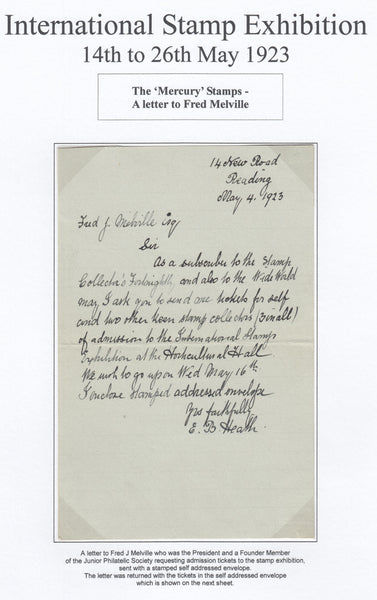 International Stamp Exhibition
14th to 26th May 1923
The ‘Mercury’ Stamps -
A letter to Fred Melville
14 New Road
Reading
May 4. 1923
Fred J. Melville Esq
Sir
As a subscriber to the Stamp
Collector's Fortnightly, and also to the Wide World
may I ask you to send me tickets for self
and two other keen stamp collectors (3 in all)
of admission to the International Stamp
Exhibition at the Horticultural Hall.
We wish to go up on Wed May 16th.
I enclose stamped addressed envelope
Yrs faithfully
E. B Heath.
A letter to Fred J Melville who was the President and a Founder Member
of the Junior Philatelic Society requesting admission tickets to the stamp exhibition,
sent with a stamped self addressed envelope.
The letter was returned with the tickets in the self addressed envelope
which is shown on the next sheet.